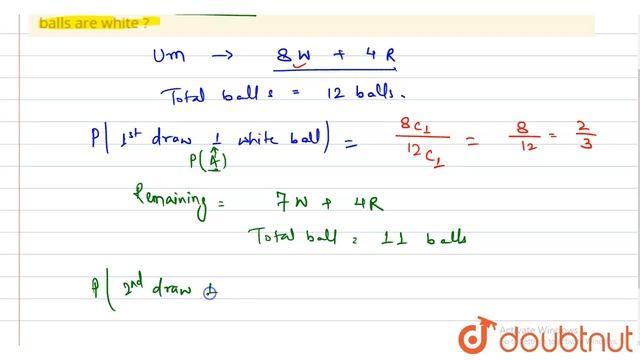 balls are white ?
Urn → 8W + 4R
Total balls = 12 balls.
P( 1st draw 1 white ball) = 8C1 / 12C1 = 8/12 = 2/3
P(A)
Remaining = 7W + 4R
Total ball = 11 balls
P( 2nd draw 1
Activate Windows
Go to Settings to activate Windows.
doubtnut